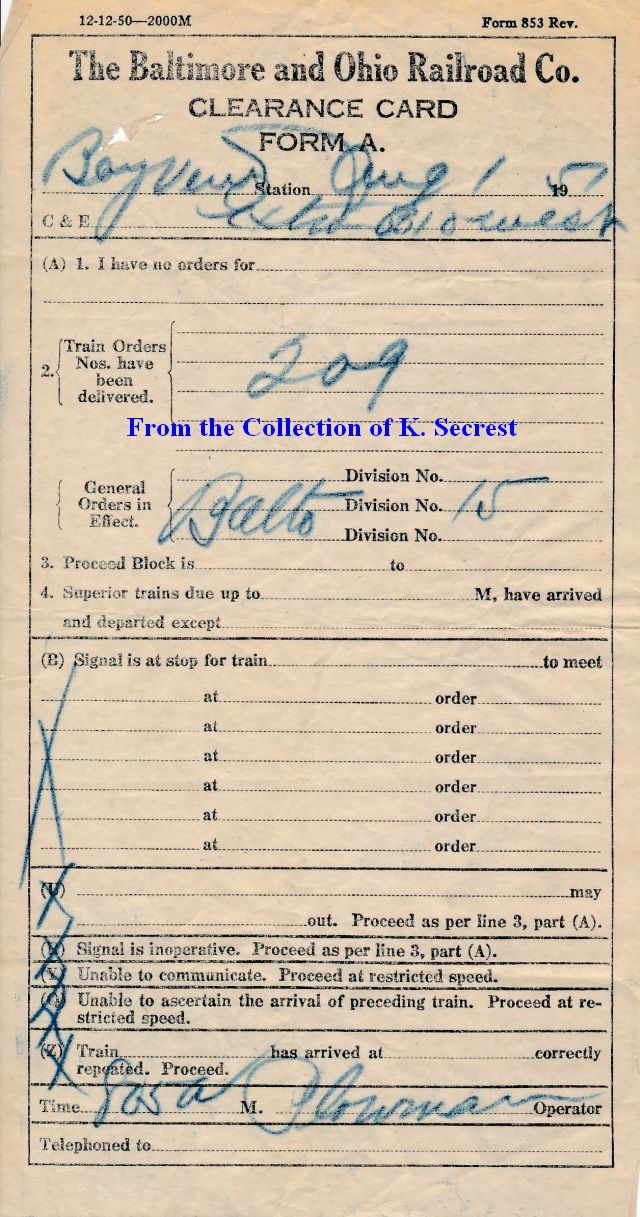 12-12-50—2000M Form 853 Rev.
The Baltimore and Ohio Railroad Co.
CLEARANCE CARD
FORM A.
Bay View Station Aug 1 1951
C & E Extra 810 west
(A) 1. I have no orders for
2. Train Orders Nos. have been delivered. 209
From the Collection of K. Secrest
General Orders in Effect.
Division No.
Balto Division No. 15
Division No.
3. Proceed Block is to
4. Superior trains due up to M, have arrived
and departed except
(B) Signal is at stop for train to meet
at order
at order
at order
at order
at order
at order
may
out. Proceed as per line 3, part (A).
Signal is inoperative. Proceed as per line 3, part (A).
Unable to communicate. Proceed at restricted speed.
Unable to ascertain the arrival of preceding train. Proceed at re-
stricted speed.
(Z) Train has arrived at correctly
repeated. Proceed.
Time 805 a M. Plowman Operator
Telephoned to